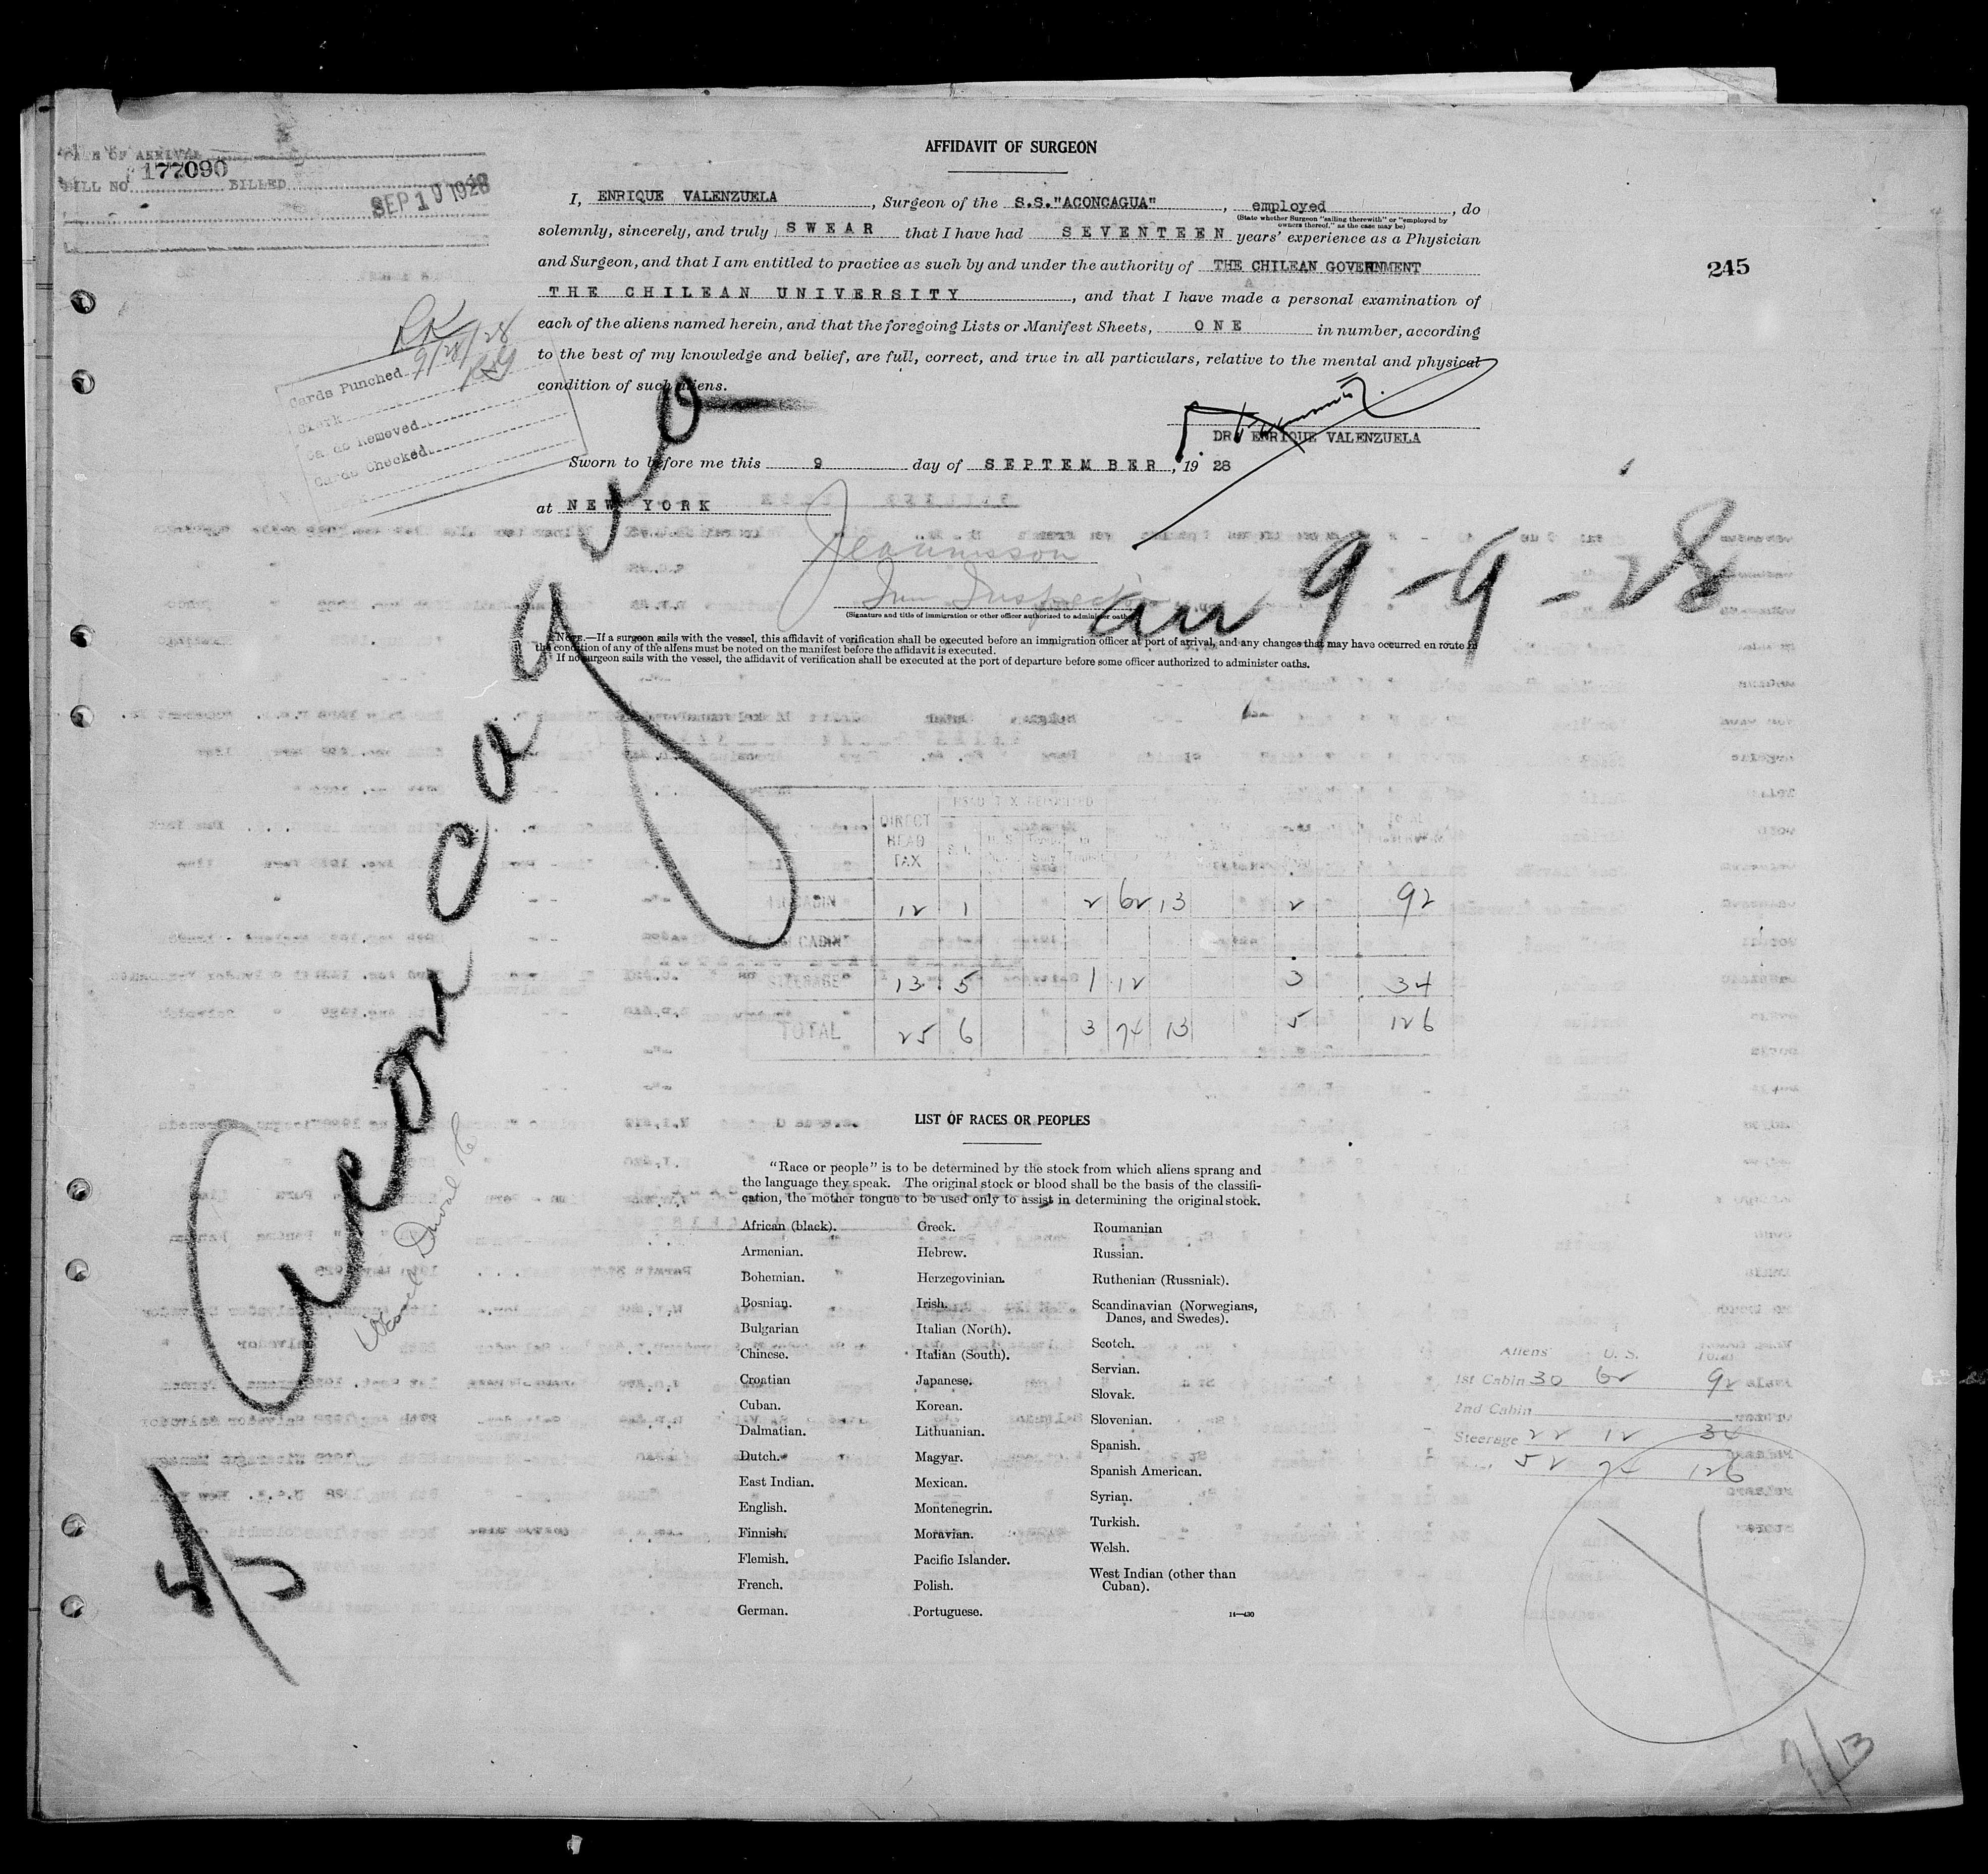 AFFIDAVIT OF SURGEON
DATE OF ARRIVAL
BILL NO. 177090 BILLED SEP 10 1928
245
I, ENRIQUE VALENZUELA, Surgeon of the S.S."ACONCAGUA", employed, do
(State whether Surgeon "sailing therewith" or "employed by
owners thereof," as the case may be)
solemnly, sincerely, and truly SWEAR that I have had SEVENTEEN years' experience as a Physician
and Surgeon, and that I am entitled to practice as such by and under the authority of THE CHILEAN GOVERNMENT
THE CHILEAN UNIVERSITY, and that I have made a personal examination of
each of the aliens named herein, and that the foregoing Lists or Manifest Sheets, ONE in number, according
to the best of my knowledge and belief, are full, correct, and true in all particulars, relative to the mental and physical
condition of such aliens.
DR. ENRIQUE VALENZUELA
Sworn to before me this 9 day of SEPTEMBER, 19 28
at NEW YORK
Imm Inspector
(Signature and title of immigration or other officer authorized to administer oath)
NOTE.—If a surgeon sails with the vessel, this affidavit of verification shall be executed before an immigration officer at port of arrival, and any changes that may have occurred en route in
the condition of any of the aliens must be noted on the manifest before the affidavit is executed.
If no surgeon sails with the vessel, the affidavit of verification shall be executed at the port of departure before some officer authorized to administer oaths.
RK
Cards Punched 9/28/28
Clerk
Cards Removed
Cards Checked
Aconcagua
arr 9-9-28
4/5
DIRECT HEAD TAX
HEAD TAX DEPOSITED
CABIN 12 1 2 62 13 2 92
CABIN
STEERAGE 13 5 1 12 3 34
TOTAL 25 6 3 74 13 5 126
LIST OF RACES OR PEOPLES
"Race or people" is to be determined by the stock from which aliens sprang and
the language they speak. The original stock or blood shall be the basis of the classifi-
cation, the mother tongue to be used only to assist in determining the original stock.
African (black).
Armenian.
Bohemian.
Bosnian.
Bulgarian
Chinese.
Croatian
Cuban.
Dalmatian.
Dutch.
East Indian.
English.
Finnish.
Flemish.
French.
German.
Greek.
Hebrew.
Herzegovinian.
Irish.
Italian (North).
Italian (South).
Japanese.
Korean.
Lithuanian.
Magyar.
Mexican.
Montenegrin.
Moravian.
Pacific Islander.
Polish.
Portuguese.
Roumanian
Russian.
Ruthenian (Russniak).
Scandinavian (Norwegians,
Danes, and Swedes).
Scotch.
Servian.
Slovak.
Slovenian.
Spanish.
Spanish American.
Syrian.
Turkish.
Welsh.
West Indian (other than
Cuban).
14—430
Aliens U. S. Total
1st Cabin 30 62 92
2nd Cabin
Steerage 22 12 34
52 74 126
7/13